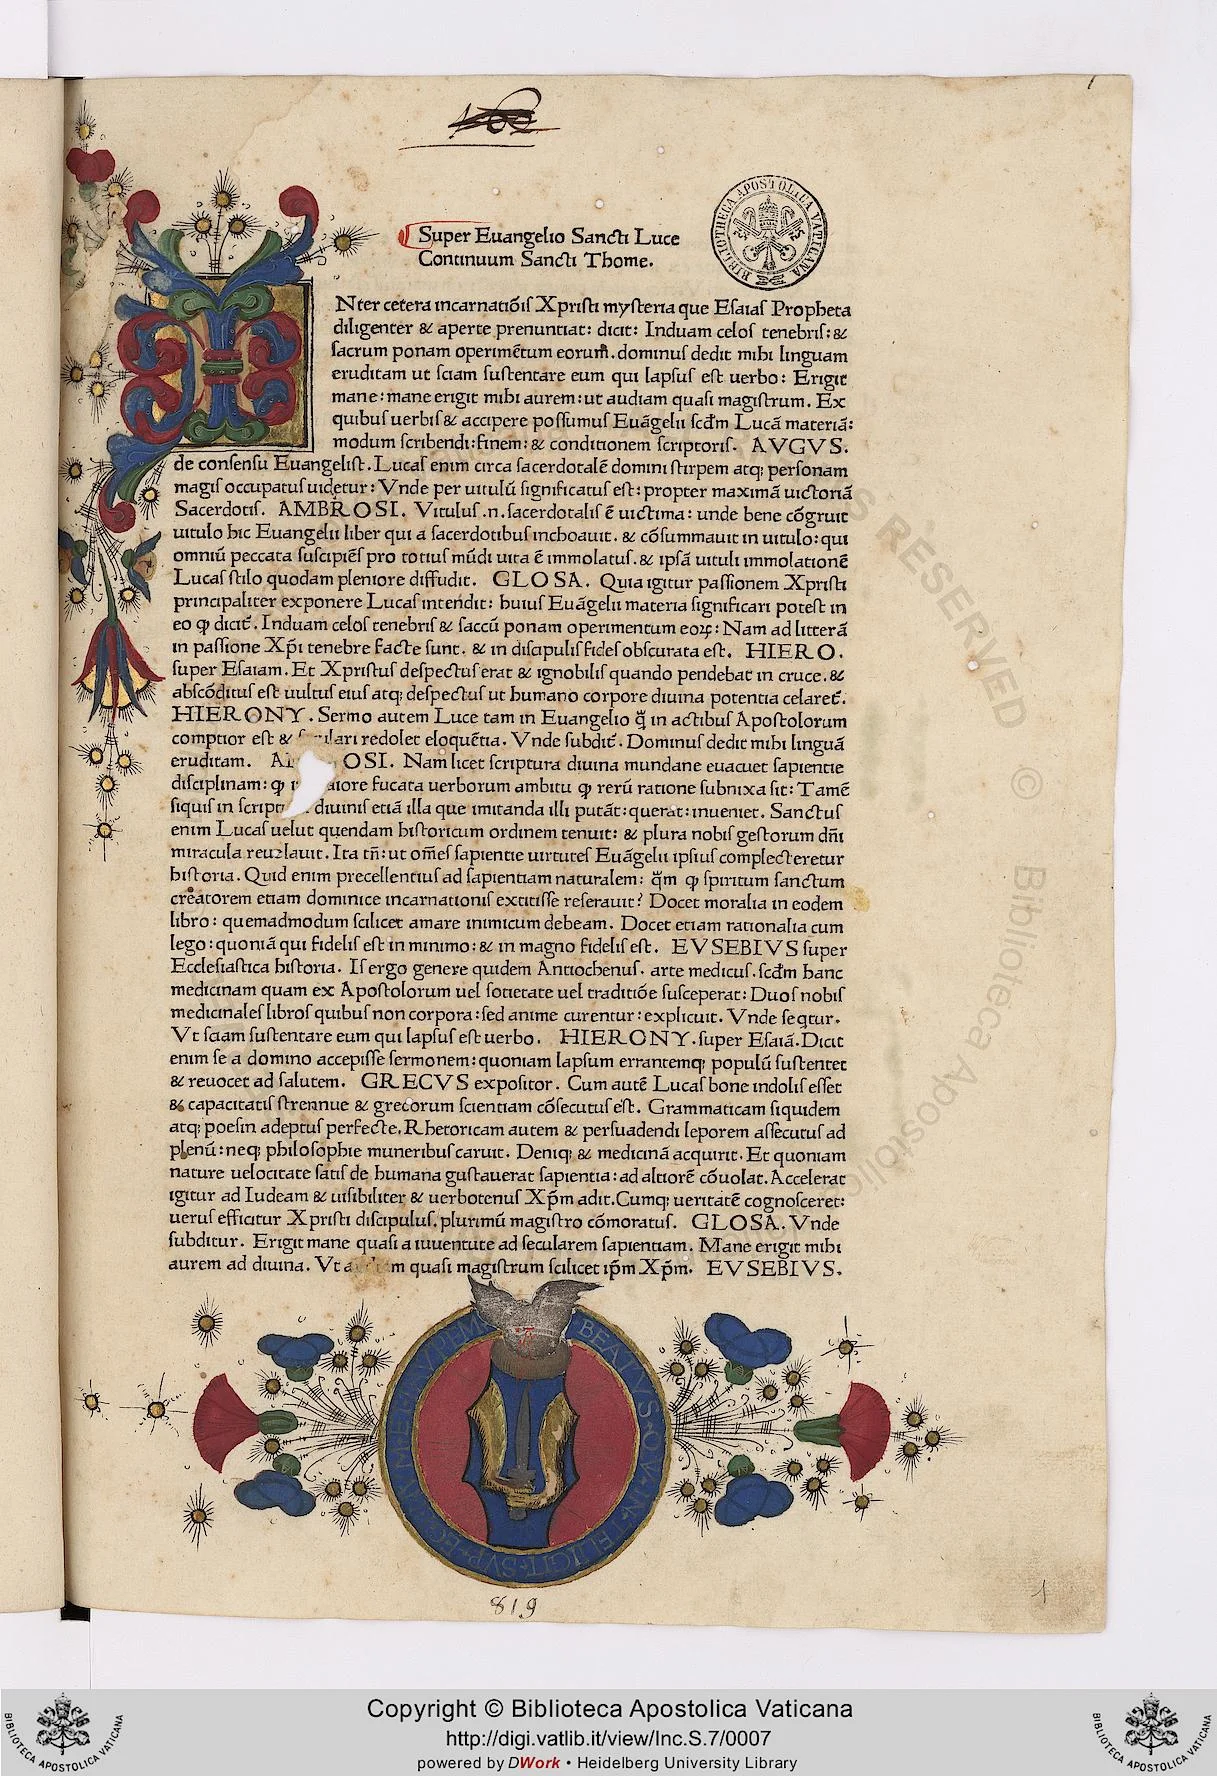 1
BIBLIOTHECA APOSTOLICA VATICANA
Super Euangelio Sancti Luce
Continuum Sancti Thome.
INter cetera incarnatiõis Xpristi mysteria que Esaias Propheta
diligenter & aperte prenuntiat: dicit: Induam celos tenebris: &
saccum ponam operimẽtum eorum. dominus dedit mihi linguam
eruditam ut sciam sustentare eum qui lapsus est uerbo: Erigit
mane: mane erigit mihi aurem: ut audiam quasi magistrum. Ex
quibus uerbis & accipere possumus Euãgelii scđm Lucã materiã:
modum scribendi: finem: & conditionem scriptoris. AVGVS.
de consensu Euangelist. Lucas enim circa sacerdotalẽ domini stirpem atq; personam
magis occupatus uidetur: Vnde per uitulũ significatus est: propter maximã uictoriã
Sacerdotis. AMBROSI. Vitulus .n. sacerdotalis ẽ uictima: unde bene cõgruit
uitulo hic Euangelii liber qui a sacerdotibus inchoauit. & cõsummauit in uitulo: qui
omniũ peccata suscipiẽs pro totius mũdi uita ẽ immolatus. & ipsã uituli immolationẽ
Lucas stilo quodam pleniore diffudit. GLOSA. Quia igitur passionem Xpristi
principaliter exponere Lucas intendit: huius Euãgelii materia significari potest in
eo ꝙ dicit᷑. Induam celos tenebris & saccũ ponam operimentum eoꝝ: Nam ad litterã
in passione Xp̃i tenebre facte sunt. & in discipulis fides obscurata est. HIERO.
super Esaiam. Et Xpristus despectus erat & ignobilis quando pendebat in cruce. &
abscõditus est uultus eius atq; despectus ut humano corpore diuina potentia celaret᷑.
HIERONY. Sermo autem Luce tam in Euangelio q̃ in actibus Apostolorum
comptior est & lari redolet eloquẽtia. Vnde subdit᷑. Dominus dedit mihi linguã
eruditam. A OSI. Nam licet scriptura diuina mundane euacuet sapientie
disciplinam: ꝙ aiore fucata uerborum ambitu ꝙ rerũ ratione subnixa sit: Tamẽ
siquis in script diuinis etiã illa que imitanda illi putãt: querat: inueniet. Sanctus
enim Lucas uelut quendam historicum ordinem tenuit: & plura nobis gestorum dñi
miracula reuelauit. Ita tñ: ut om̃es sapientie uirtutes Euãgelii ipsius complecteretur
historia. Quid enim precellentius ad sapientiam naturalem: q̃m ꝙ spiritum sanctum
creatorem etiam dominice incarnationis extitisse reserauit? Docet moralia in eodem
libro: quemadmodum scilicet amare inimicum debeam. Docet etiam rationalia cum
lego: quoniã qui fidelis est in minimo: & in magno fidelis est. EVSEBIVS super
Ecclesiastica historia. Is ergo genere quidem Antiochenus. arte medicus. scđm hanc
medicinam quam ex Apostolorum uel societate uel traditiõe susceperat: Duos nobis
medicinales libros quibus non corpora: sed anime curentur: explicuit. Vnde seqtur.
Vt sciam sustentare eum qui lapsus est uerbo. HIERONY. super Esaiã. Dicit
enim se a domino accepisse sermonem: quoniam lapsum errantemq; populũ sustentet
& reuocet ad salutem. GRECVS expositor. Cum autẽ Lucas bone indolis esset
& capacitatis strennue & grecorum scientiam cõsecutus est. Grammaticam siquidem
atq; poesin adeptus perfecte. Rhetoricam autem & persuadendi leporem assecutus ad
plenũ: neq; philosophie muneribus caruit. Deniq; & medicinã acquirit. Et quoniam
nature uelocitate satis de humana gustauerat sapientia: ad altiorẽ cõuolat. Accelerat
igitur ad Iudeam & uisibiliter & uerbotenus Xp̃m adit. Cumq; ueritatẽ cognosceret:
uerus efficitur Xpristi discipulus. plurimũ magistro cõmoratus. GLOSA. Vnde
subditur. Erigit mane quasi a iuuentute ad secularem sapientiam. Mane erigit mihi
aurem ad diuina. Vt a m quasi magistrum scilicet ip̃m Xp̃m. EVSEBIVS.
BEATVS QVI INTELIGIT SVP
819
1
RESERVED © Biblioteca Apostolica
Copyright © Biblioteca Apostolica Vaticana
http://digi.vatlib.it/view/Inc.S.7/0007
powered by DWork • Heidelberg University Library
BIBLIOTECA APOSTOLICA VATICANA
BIBLIOTECA APOSTOLICA VATICANA